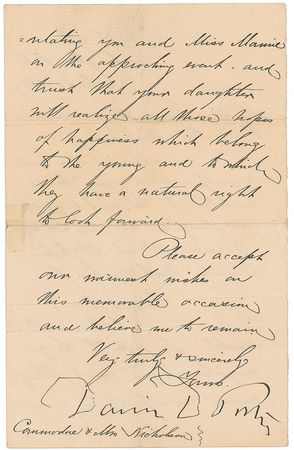 =ulating you and Miss Mamie
on the approching event. and
trust that your daughter
will realize all those hopes
of happiness which belong
to the young and to which
they have a natural right
to look forward.
Please accept
our warmest wishes on
this memorable occasion
and believe me to remain
Very truly & sincerely
Yours.
David D Porter
Commodore & Mrs Nicholson}